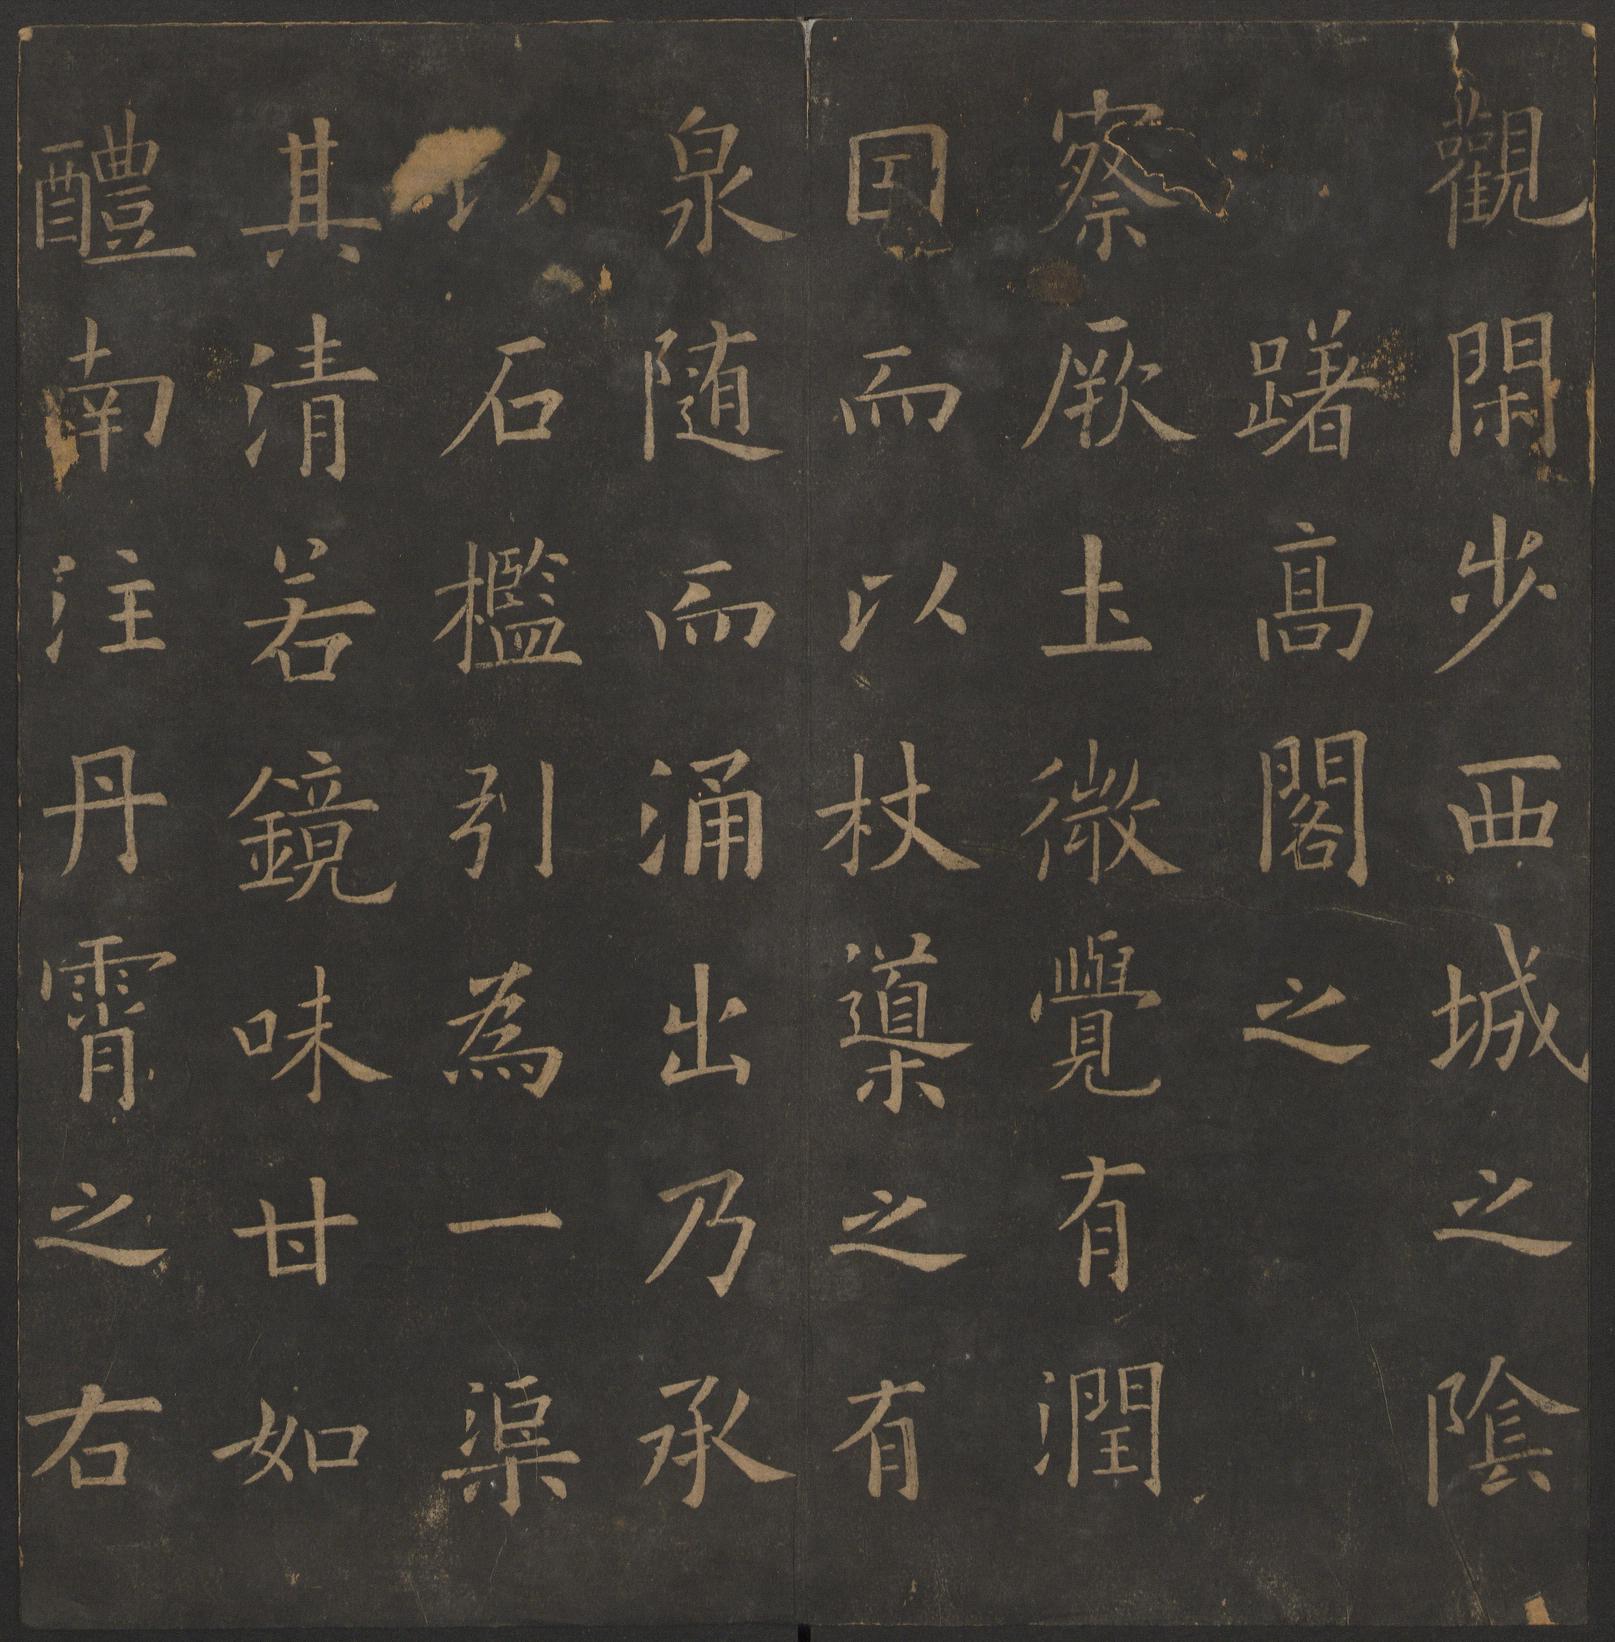 觀閑步西城之陰
躇高閣之
察厥土微覺有潤
因而以杖導之有
泉随而涌出乃承
以石檻引為一渠
其清若鏡味甘如
醴南注丹霄之右